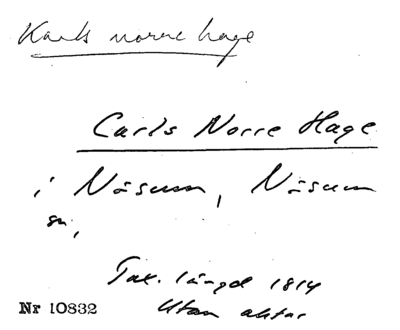 Karls norre hage
Carls Norre Hage
i Näsum, Näsum
sn,
Tax. längd 1814
Utan aktor
Nr 10832